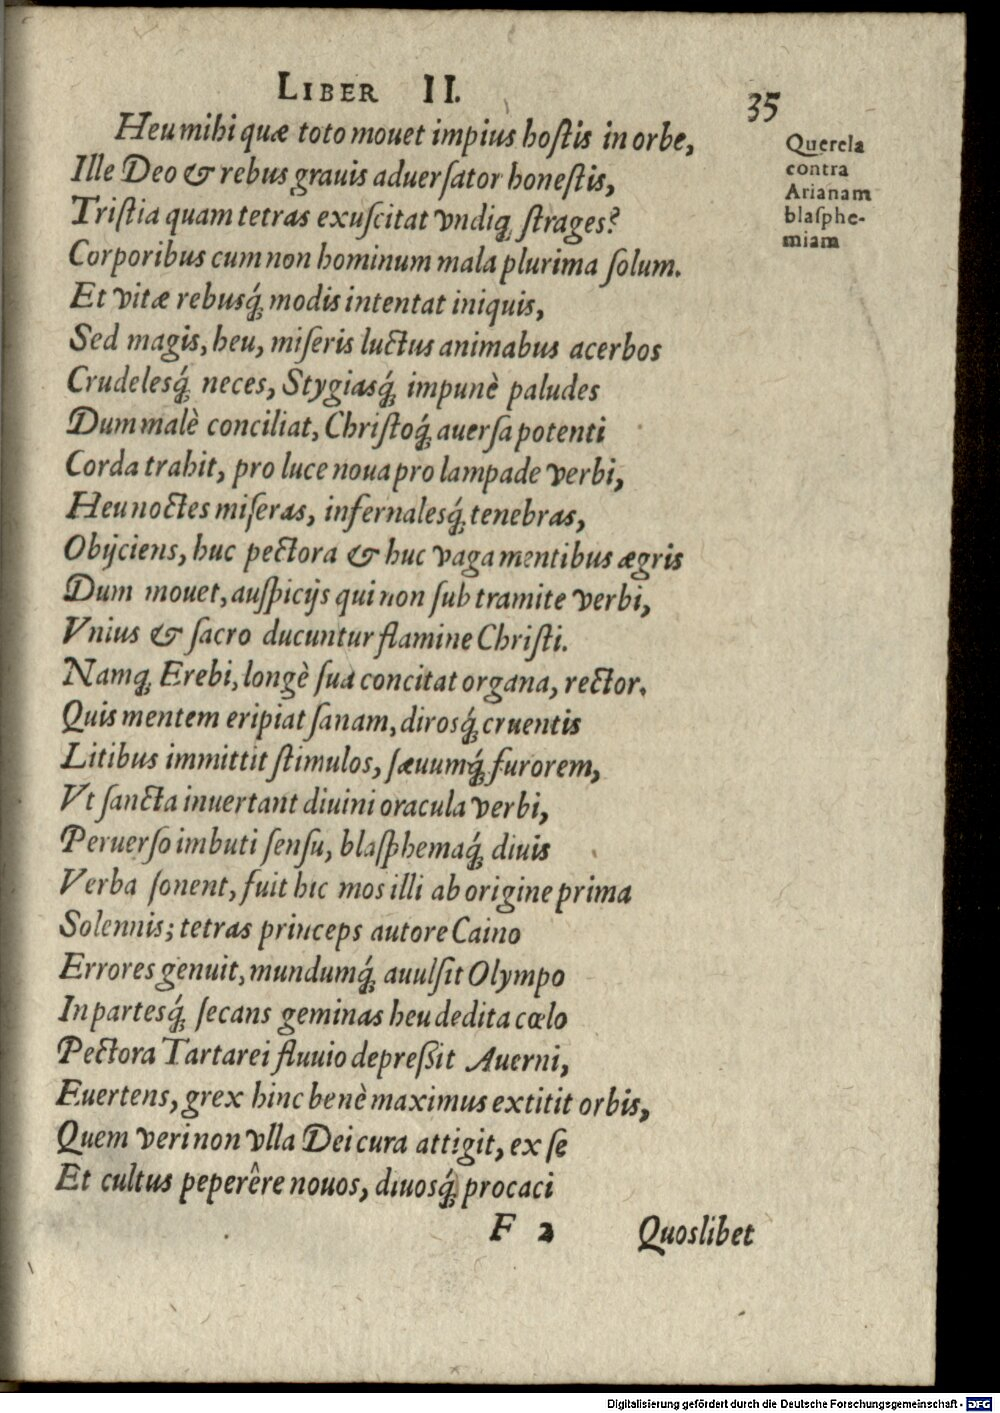 LIBER II.
35
Heu mihi quæ toto mouet impius hoſtis in orbe,
Ille Deo & rebus grauis aduerſator honeſtis,
Triſtia quam tetras exuſcitat vndiq́; ſtrages?
Corporibus cum non hominum mala plurima ſolum.
Et vitæ rebusq́; modis intentat iniquis,
Sed magis, heu, miſeris luctus animabus acerbos
Crudelesq́; neces, Stygiasq́; impunè paludes
Dum malè conciliat, Chriſtoq́; auerſa potenti
Corda trahit, pro luce noua pro lampade verbi,
Heu noctes miſeras, infernalesq́; tenebras,
Obijciens, huc pectora & huc vaga mentibus ægris
Dum mouet, auſpicijs qui non ſub tramite verbi,
Vnius & ſacro ducuntur flamine Chriſti.
Namq; Erebi, longè ſua concitat organa, rector.
Quis mentem eripiat ſanam, dirosq́; cruentis
Litibus immittit ſtimulos, ſæuumq́; furorem,
Vt ſancta inuertant diuini oracula verbi,
Peruerſo imbuti ſenſu, blaſphemaq́; diuis
Verba ſonent, fuit hic mos illi ab origine prima
Solennis; tetras princeps autore Caino
Errores genuit, mundumq́; auulſit Olympo
In partesq́; ſecans geminas heu dedita cœlo
Pectora Tartarei fluuio depreßit Auerni,
Euertens, grex hinc benè maximus extitit orbis,
Quem veri non vlla Dei cura attigit, ex ſe
Et cultus peperêre nouos, diuosq́; procaci
F 2 Quoslibet
Querela
contra
Arianam
blaſphe-
miam
Digitalisierung gefördert durch die Deutsche Forschungsgemeinschaft - DFG